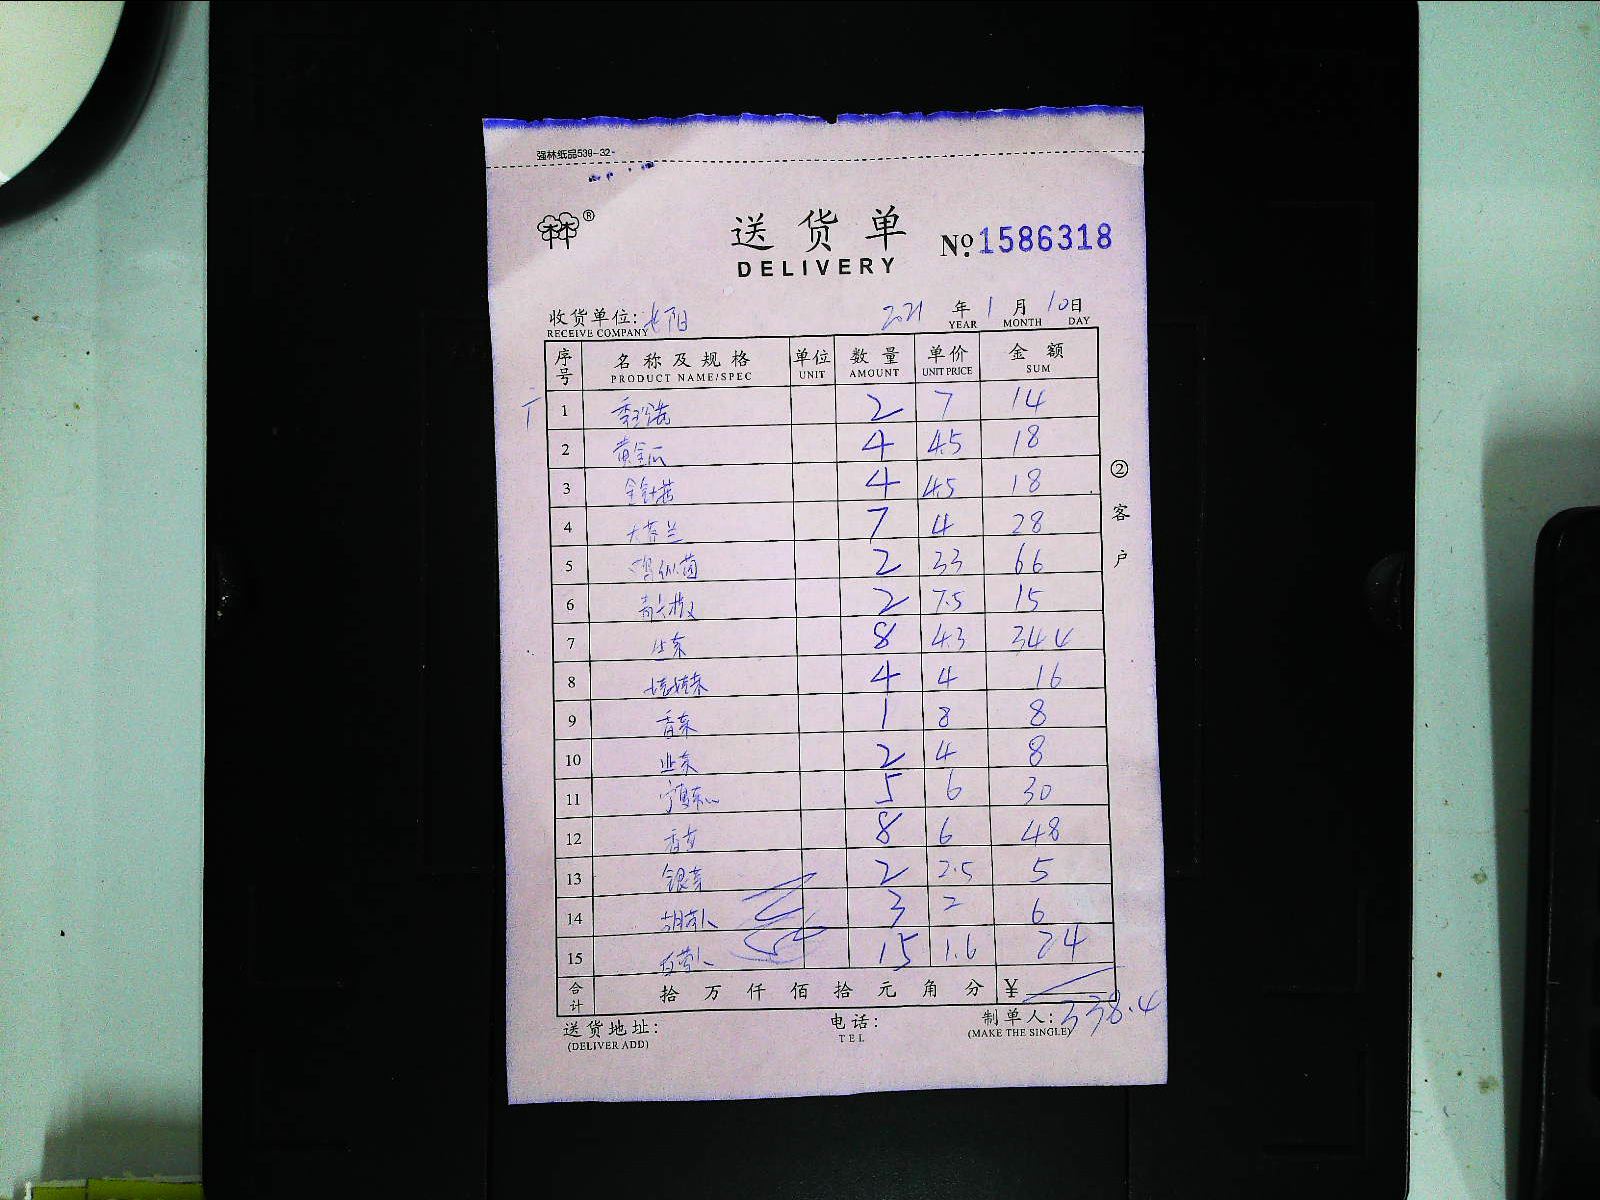 强林纸品539-32-
®
送货单 No. 1586318
DELIVERY
收货单位: 2021 年 1 月 10 日
RECEIVE COMPANY YEAR MONTH DAY
序号 名称及规格 单位 数量 单价 金额
PRODUCT NAME/SPEC UNIT AMOUNT UNIT PRICE SUM
1 2 7 14
2 黄金瓜 4 4.5 18
3 金针菇 4 4.5 18
4 大芥兰 7 4 28
5 2 33 66
6 2 7.5 15
7 8 4.3 34.4
8 4 4 16
9 香菜 1 8 8
10 韭菜 2 4 8
11 5 6 30
12 香芹 8 6 48
13 银芽 2 2.5 5
14 胡萝卜 3 2 6
15 白萝卜 15 1.6 24
合计 拾 万 仟 佰 拾 元 角 分 ¥ 338.4
送货地址: 电话: 制单人:
(DELIVER ADD) TEL (MAKE THE SINGLE)
② 客户